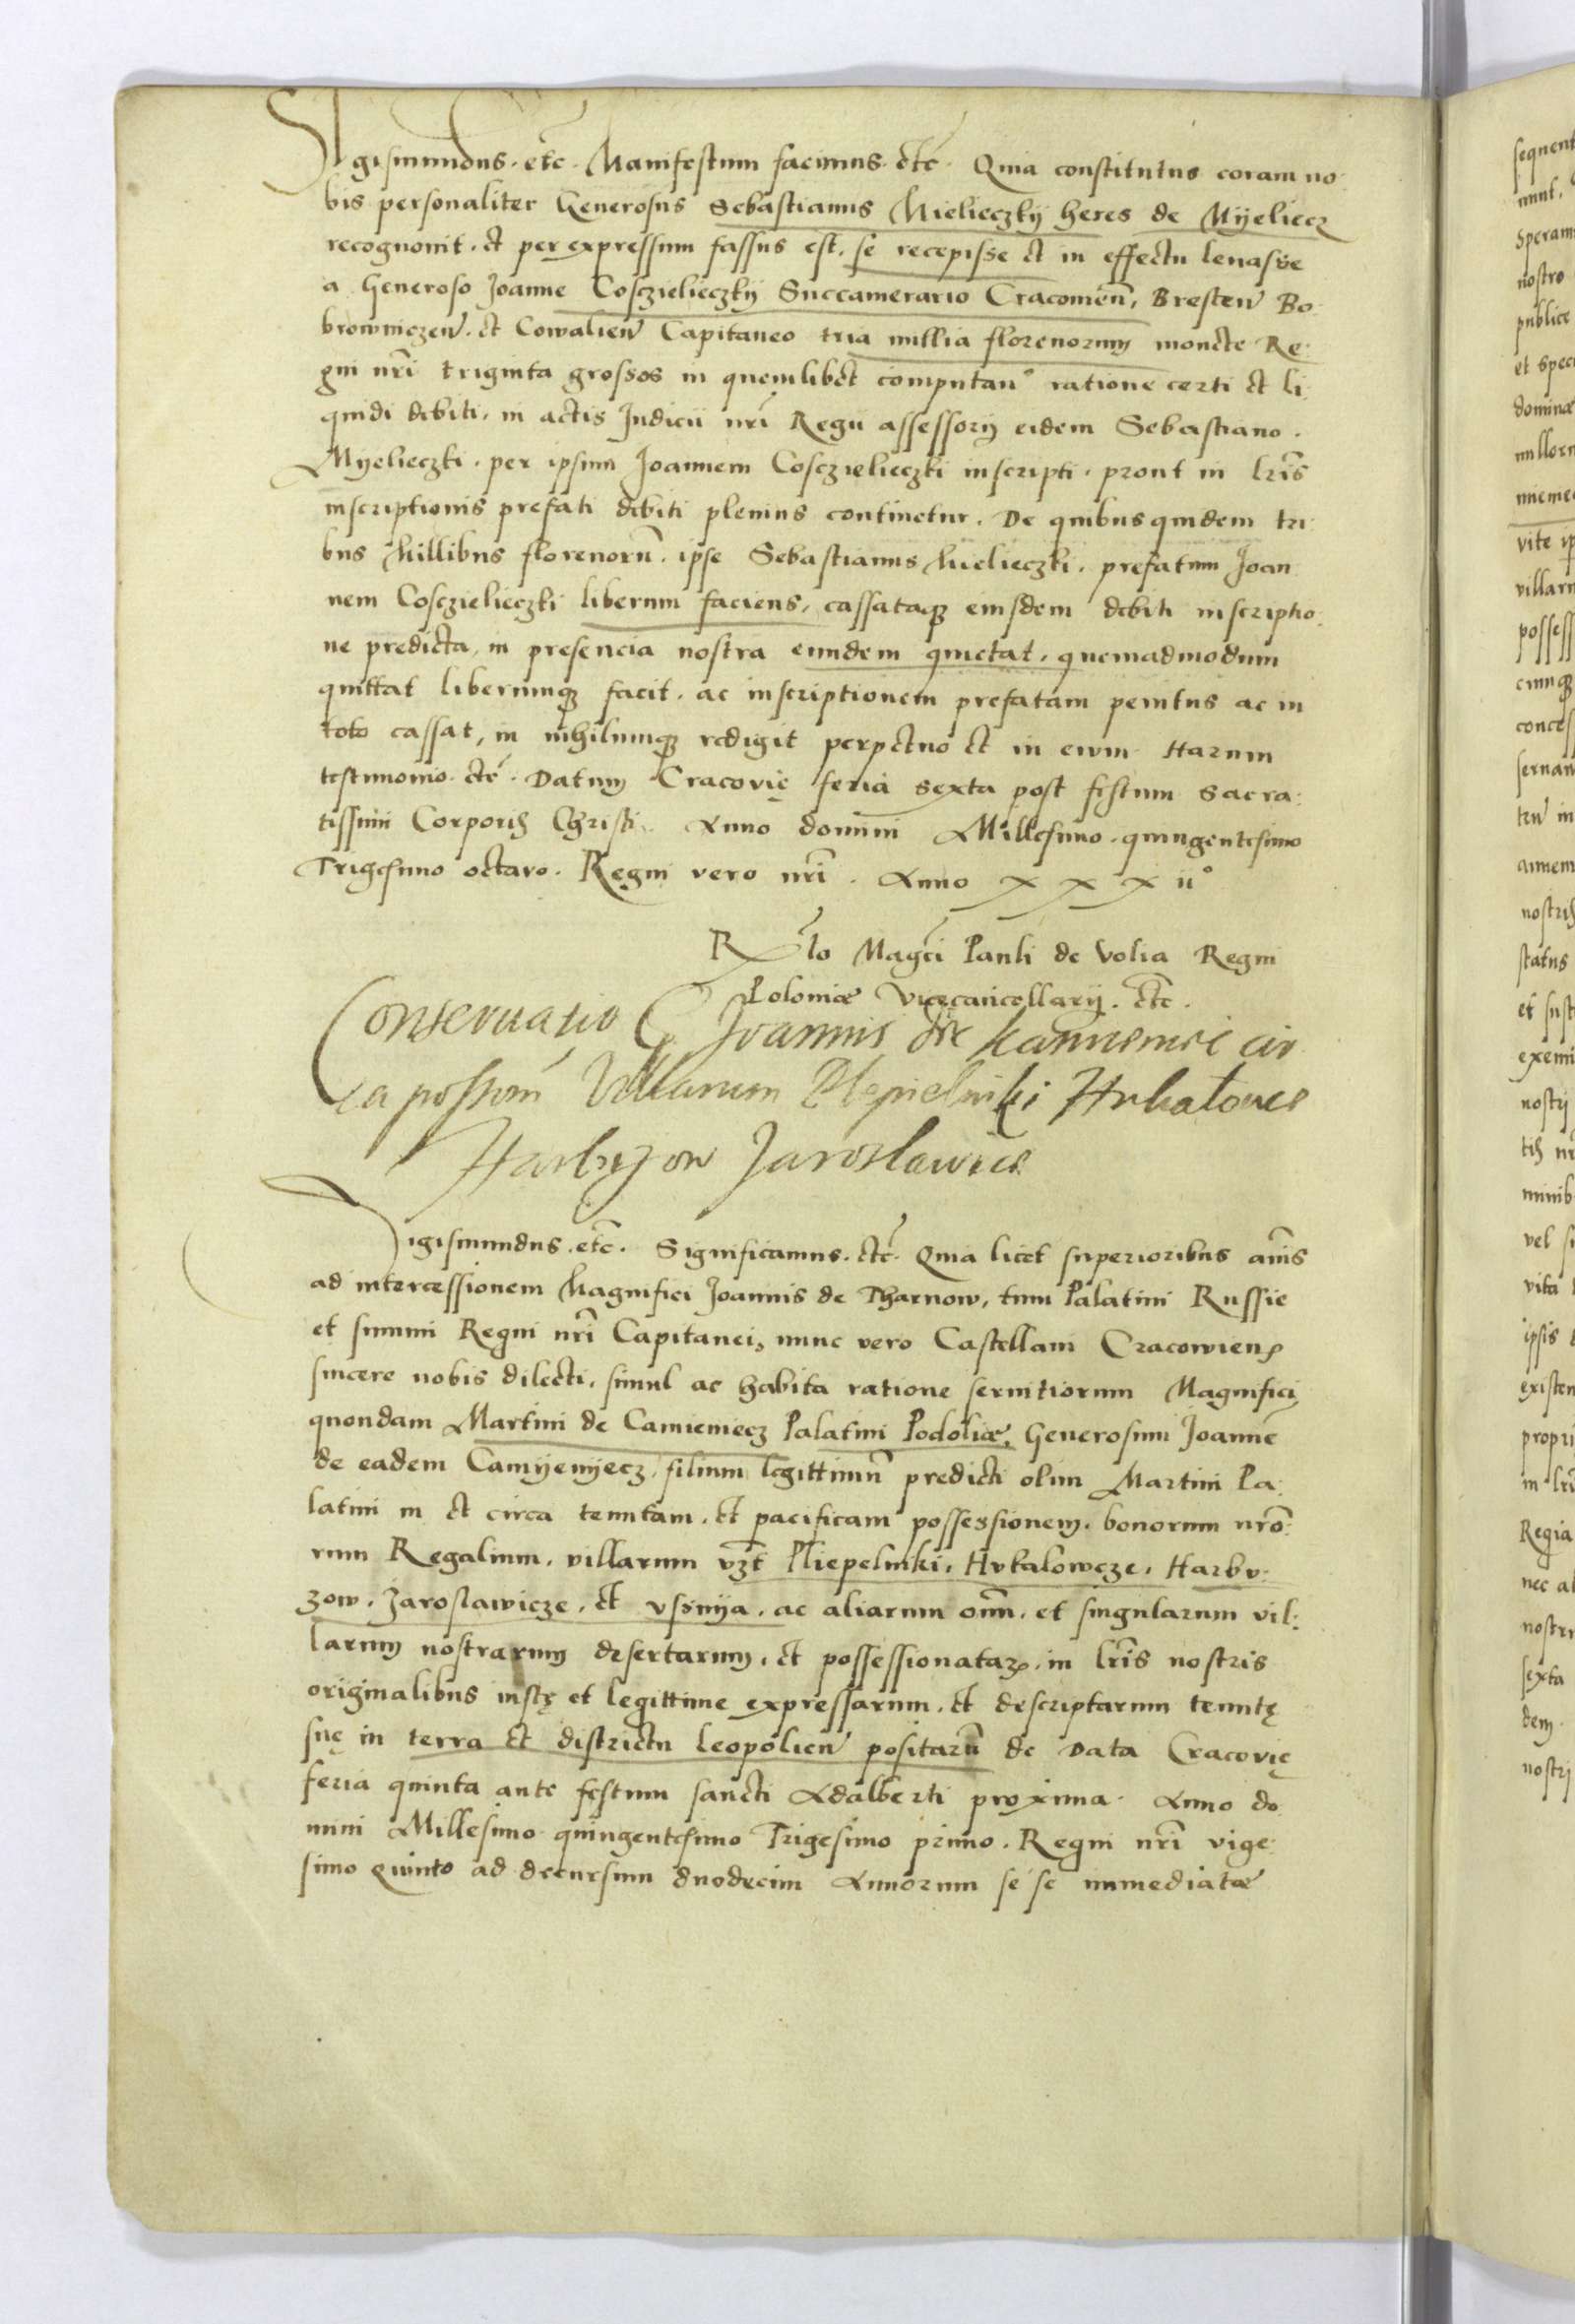 Sigismundus. etc. Manifestum facimus. etc. Quia constitutus coram no
bis personaliter Generosus Sebastianus Mielieczky heres de Myeliecz
recognouit. et per expressum fassus est. se recepisse et in effectu leuasse
a Generoso Joanne Cosczielieczky Succamerario Cracouien, Bresten Bo
browniczen. et Cowalien Capitaneo tria millia florenorum monete Re
gni nri triginta grossos in quemlibet computan ratione certi et li
quidi debiti. in actis Judicii nri Regii assessorij eidem Sebastiano.
Myelieczki. per ipsum Joannem Cosczielieczki inscripti. prout in lris
inscriptionis prefati debiti plenius continetur. De quibus quidem tri
bus Millibus florenoru. ipse Sebastianus Mielieczki. prefatum Joan
nem Cosczielieczki liberum faciens, cassataque eiusdem debiti inscriptio
ne predicta, in presencia nostra eundem quietat. quemadmodum
quittat liberumque facit. ac inscriptionem prefatam penitus ac in
toto cassat, in nihilumque redigit perpetuo et in ewm. Harum
testimonio. etc. Datum Cracovię feria sexta post festum sacra:
tissimi Corporis Christi. Anno domini Millesimo. quingentesimo
Trigesimo octavo. Regni vero nri. Anno xxxii°
Rlo Magci Pauli de Volia Regni
Poloniæ Vicecancellarij. etc.
Conservatio G Joannis de Kamieniec cir
ca possom Villarum Plepielniki Hukalowce
Harbuzow Jaroslawice
Sigismundus. etc. Significamus. etc. Quia licet superioribus annis
ad intercessionem Magnifici Joannis de Tharnow, tum Palatini Russie
et summi Regni nri Capitanei, nunc vero Castellani Cracowien
sincere nobis dilecti. simul ac habita ratione seruitiorum Magnifici
quondam Martini de Camieniecz Palatini Podoliæ, Generosum Joanne
de eadem Camyenyecz. filium legittimu predicti olim Martini Pa:
latini in et circa tenutam. et pacificam possessionem. bonorum nro:
rum Regalium. villarum vzt Pliepelniki. Hvkalowcze. Harbv:
zow. Jaroslawicze. et vssnya. ac aliarum omn. et singularum vil:
larum nostrarum desertarum. et possessionataru. in lris nostris
originalibus iustę et legittime expressarum. et descriptarum tenutę
suę in terra et districtu Leopolien positaru de Data Cracovię
feria quinta ante festum sancti Adalberti proxima. Anno do
mini Millesimo quingentesimo Trigesimo primo. Regni nri vige
simo Qvinto ad decursum duodecim Annorum se se immediatæ